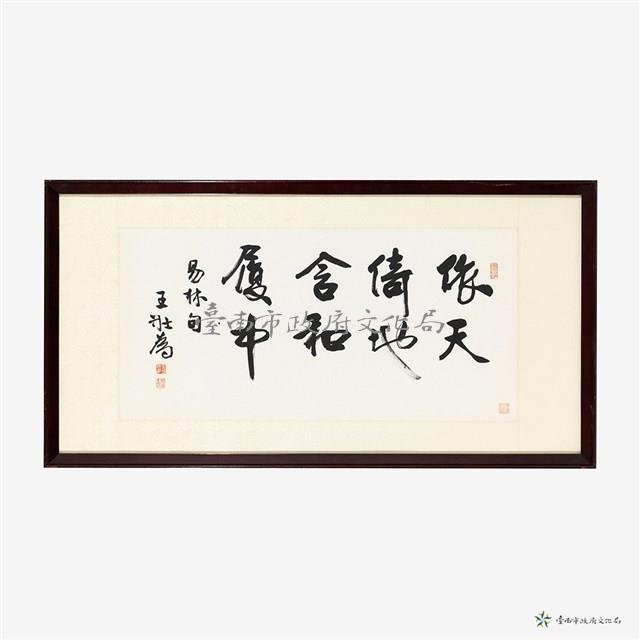 依天
倚地
含和
履中
易林句
王壯為
臺南市政府文化局
臺南市政府文化局